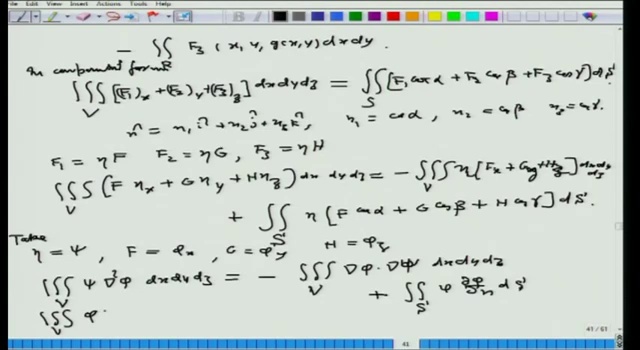 Edit View Insert Actions Tools Help
- ∬_R F₃(x, y, g(x,y)) dx dy.
In component form
∭_V [(F₁)_x + (F₂)_y + (F₃)_z] dx dy dz = ∬_S [F₁ cos α + F₂ cos β + F₃ cos γ] dS
n̂ = n₁ î + n₂ ĵ + n₃ k̂, n₁ = cos α, n₂ = cos β n₃ = cos γ.
F₁ = ηF F₂ = ηG, F₃ = ηH
∭_V (F η_x + G η_y + H η_z) dx dy dz = - ∭_V η [F_x + G_y + H_z] dx dy dz
+ ∬_S η [F cos α + G cos β + H cos γ] dS.
Take
η = ψ, F = φ_x, G = φ_y H = φ_z
∭_V ψ ∇²φ dx dy dz = - ∭_V ∇φ · ∇ψ dx dy dz
+ ∬_S ψ ∂φ/∂n dS
∭_V φ ·
41 / 61
41